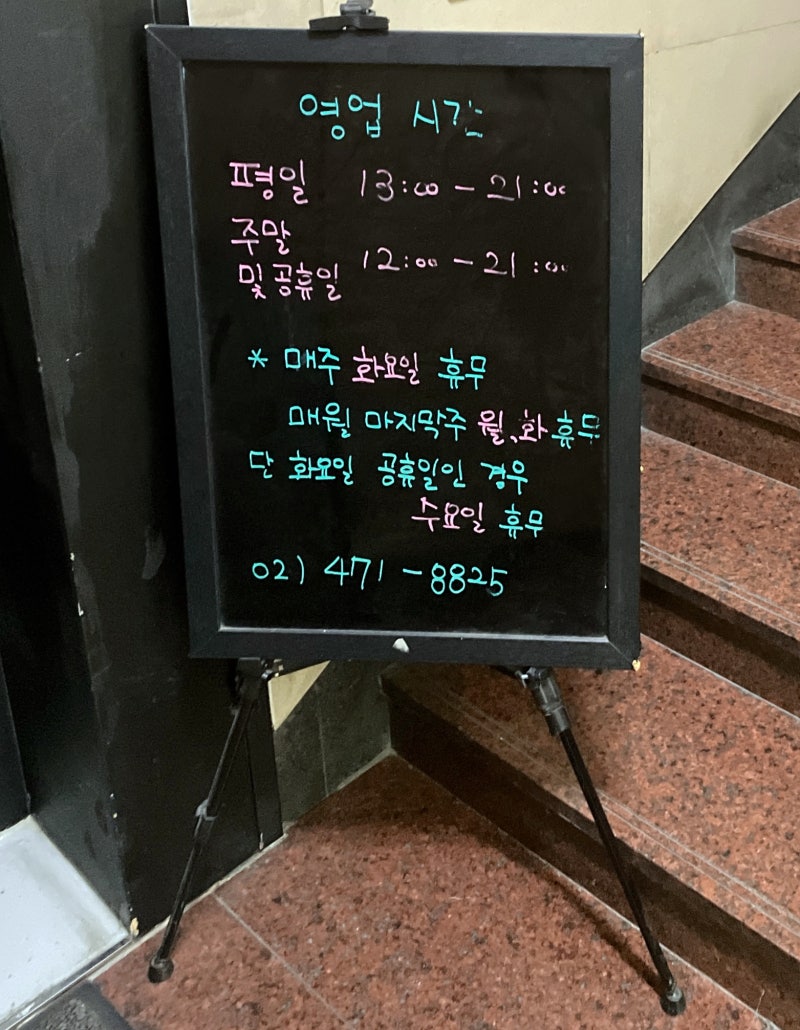 영업 시간
평일 13:00 - 21:00
주말
및 공휴일 12:00 - 21:00
* 매주 화요일 휴무
매월 마지막주 월,화 휴무
단 화요일 공휴일인 경우
수요일 휴무
02) 471-8825